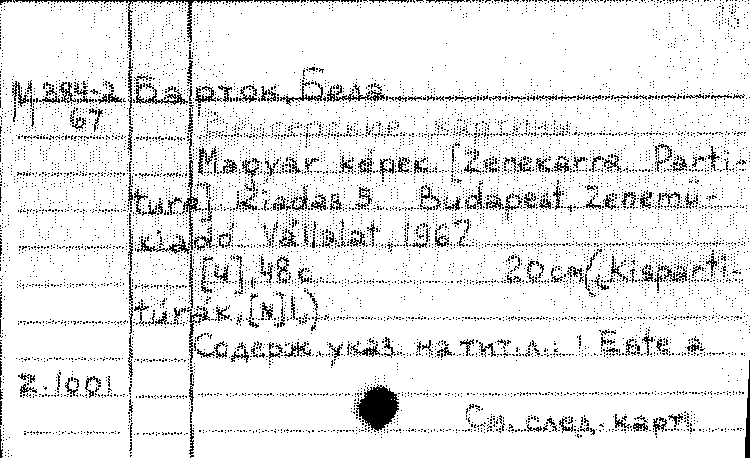 М 384-2 Барток, Бела
67 Венгерские картины
Magyar képek [Zenekarra Parti-
tura] Kiadas 3 Budapest, Zenemü-
kiadó Vállalat, 1967
[4], 48 с 20 cm (Kisparti-
túrák, [N] 1.)
Содерж. указ. на тит. л.: 1. Este a
Z.1001
См. след. карт.